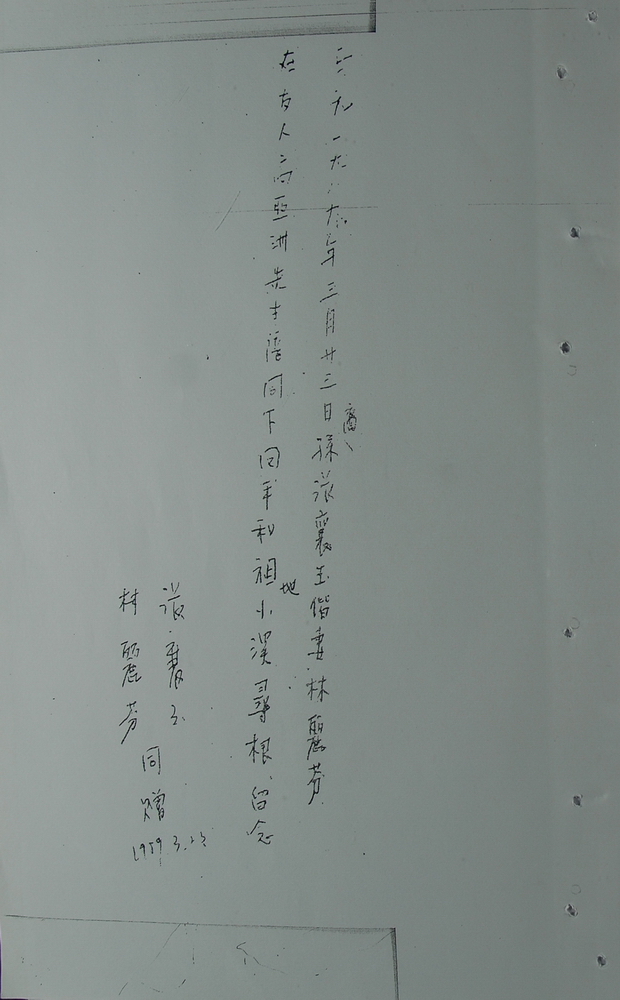 一九八九年三月廿三日裔孫張襄玉偕妻林麗芬
在友人高亞洲先生陪同下回平和祖地小溪尋根、留念
張襄玉
林麗芬
同贈
1989.3.23